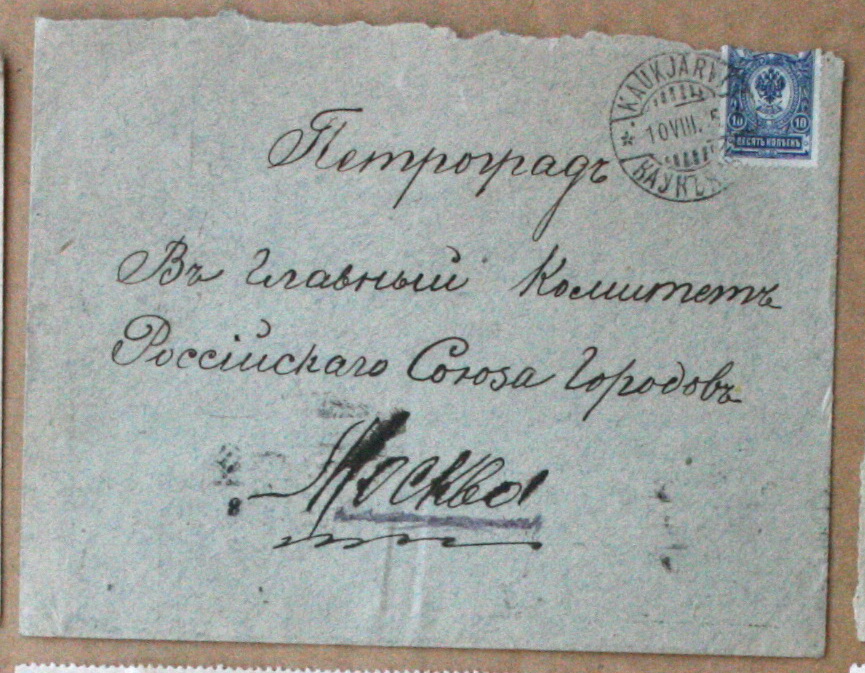 Петроградъ
KAUKJÄRVI
10 VIII. 5
КАУКЪЯ
10 10
ДЕСЯТЬ КОПѢЕКЪ
Въ Главный Комитетъ
Россійскаго Союза Городовъ
Москва
8